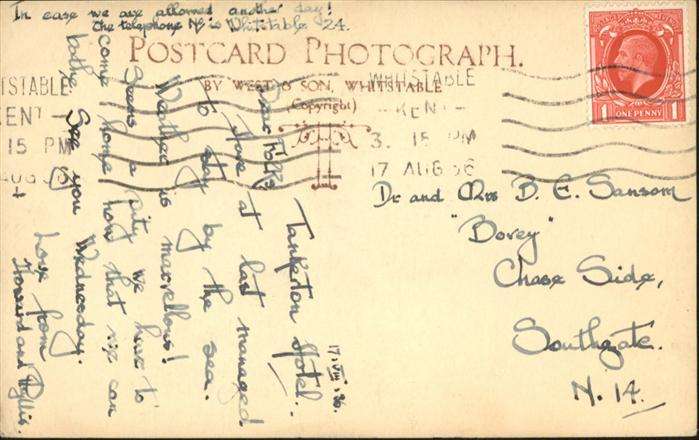 In case we are allowed another day!
The telephone No is Whitstable 24.
POSTCARD PHOTOGRAPH.
BY WEST & SON, WHITSTABLE
(Copyright)
WHITSTABLE
KENT
3. 15 PM
17 AUG 36
TSTABLE
ENT
15 PM
AUG 36
ONE PENNY
1 1
Tankerton Hotel.
17.VIII.36.
Dear Folks
Have at last managed
to stay by the sea.
Weather is marvellous!
Seems a pity we have to
come home now that we can
bathe. See you Wednesday.
Love from
Howard and Phyllis.
Dr and Mrs B. E. Sansom
"Bovey"
Chase Side,
Southgate.
N. 14.